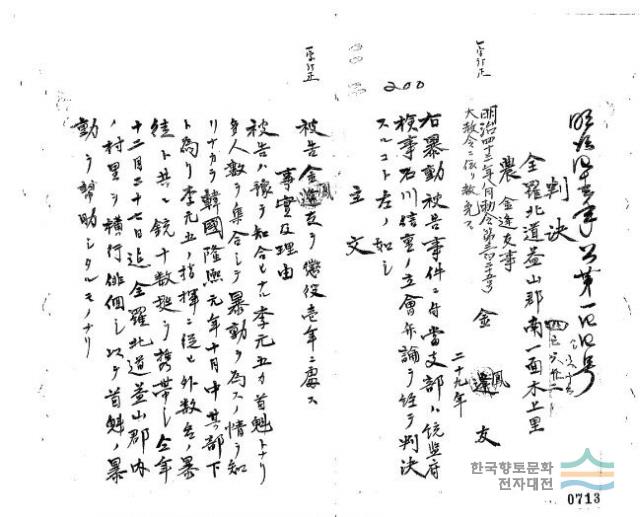 判決
全羅北道益山郡南一面木上里
農 金逢友事
金 鳳 友
二十九年
明治四十三年八月勅令第三百二十五号
大赦令ニ依リ赦免ス
右暴動被告事件ニ付當支部ハ統監府
検事石川信重ノ立會弁論ヲ経テ判決
スルコト左ノ如シ
主文
200
被告金鳳友ヲ懲役壱年ニ處ス
事實及理由
被告ハ豫テ知合ヒナル李元五カ首魁トナリ
多人数ヲ集合シテ暴動ヲ為スノ情ヲ知
リナカラ韓國隆熙元年十月中其部下
ト為リ李元五ノ指揮ニ従ヒ外数名ノ暴
徒ト共ニ銃十数挺ヲ携帯シ仝年
十二月二十七日迄全羅北道益山郡内
ノ村里ヲ横行徘徊シ以テ首魁ノ暴
動ヲ幇助シタルモノナリ
한국향토문화
전자대전
0713